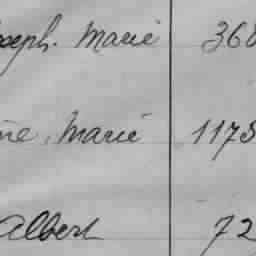 oseph. Marie 368
ne, Marie 1175
Albert 72